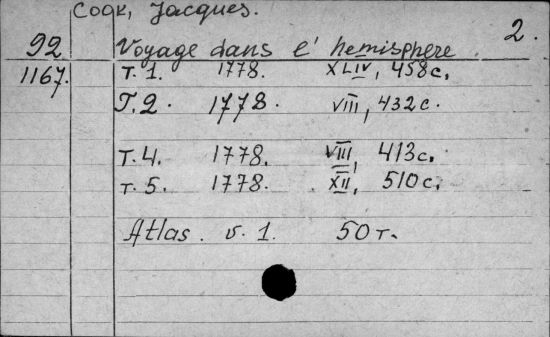 Cook, Jacques.
2.
92 Voyage dans l'hemisphere
1167. T. 1. 1778. XLIV, 458c.
T. 2. 1778. VIII, 432c.
T. 4. 1778. VIII, 413c.
T. 5. 1778. XII, 510c.
Atlas. v. 1. 50 т.